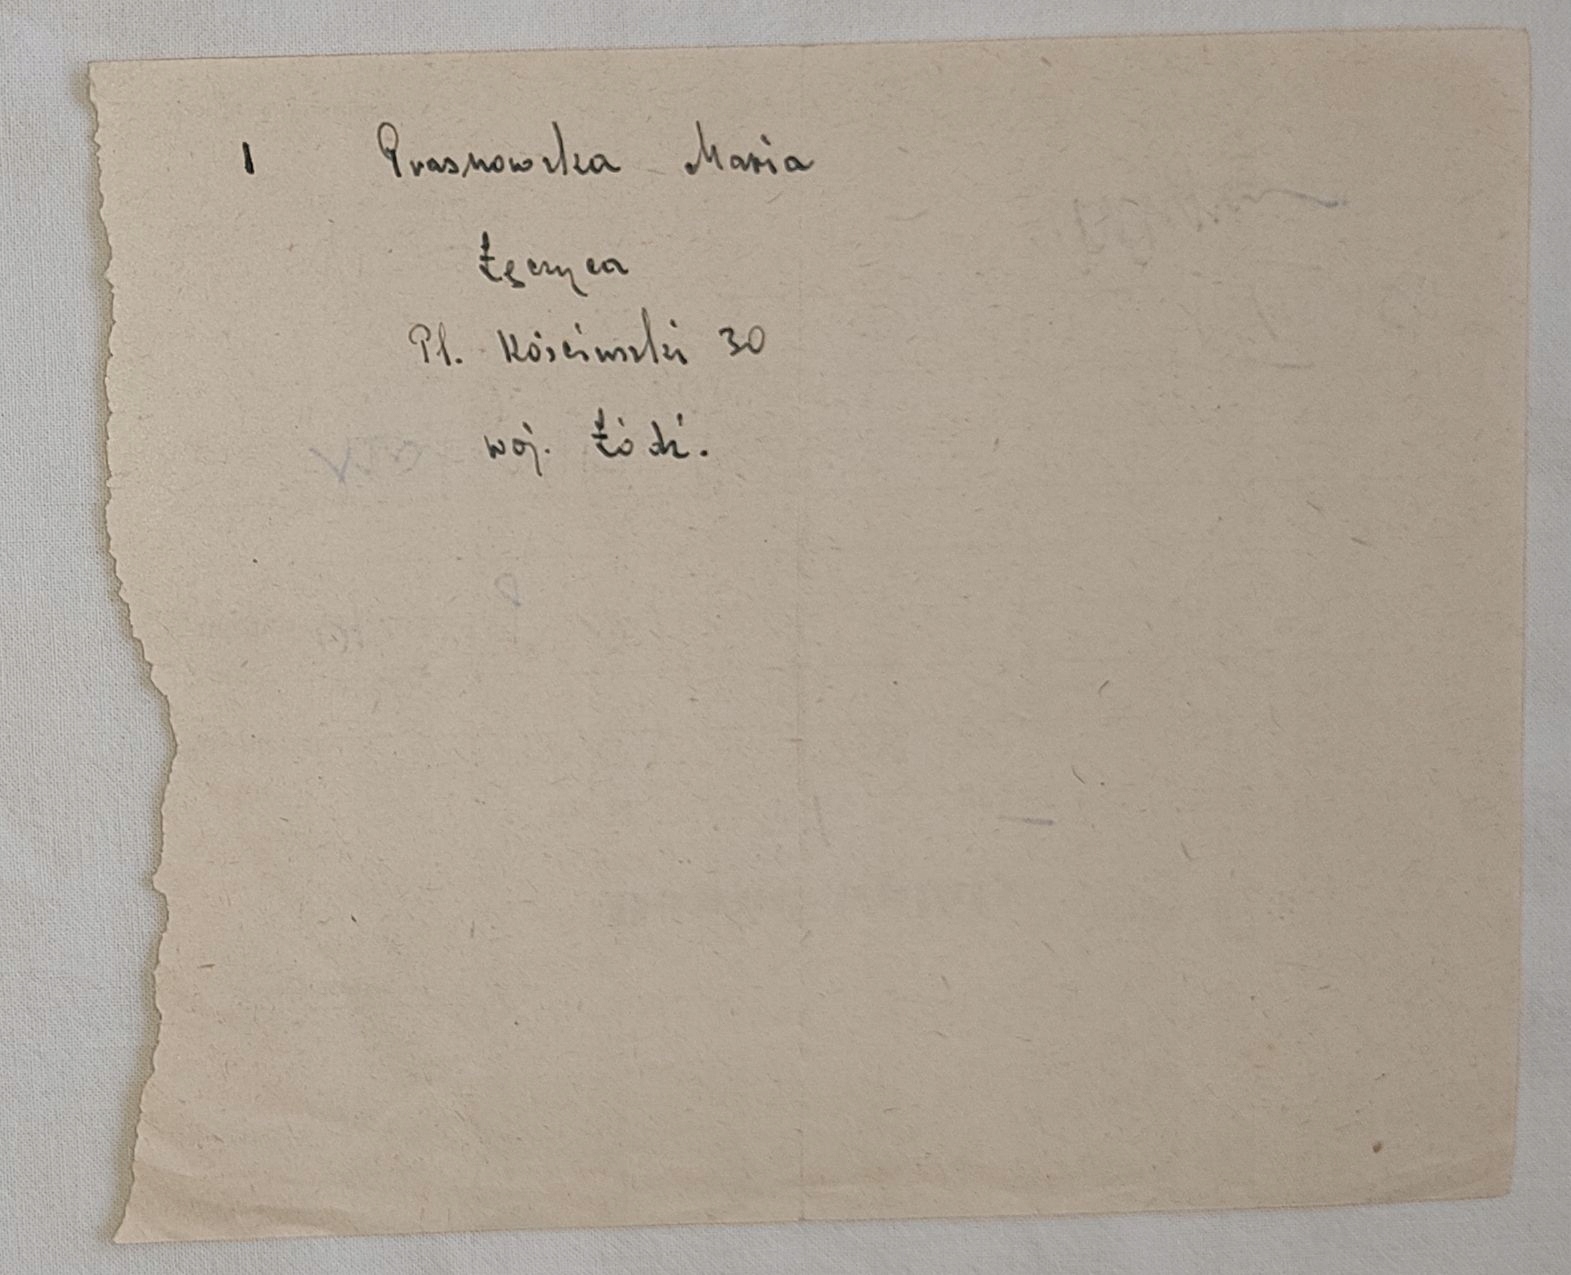 1 Prasnowska Maria
Łęczyca
Pl. Kościuszki 30
woj. Łódź.